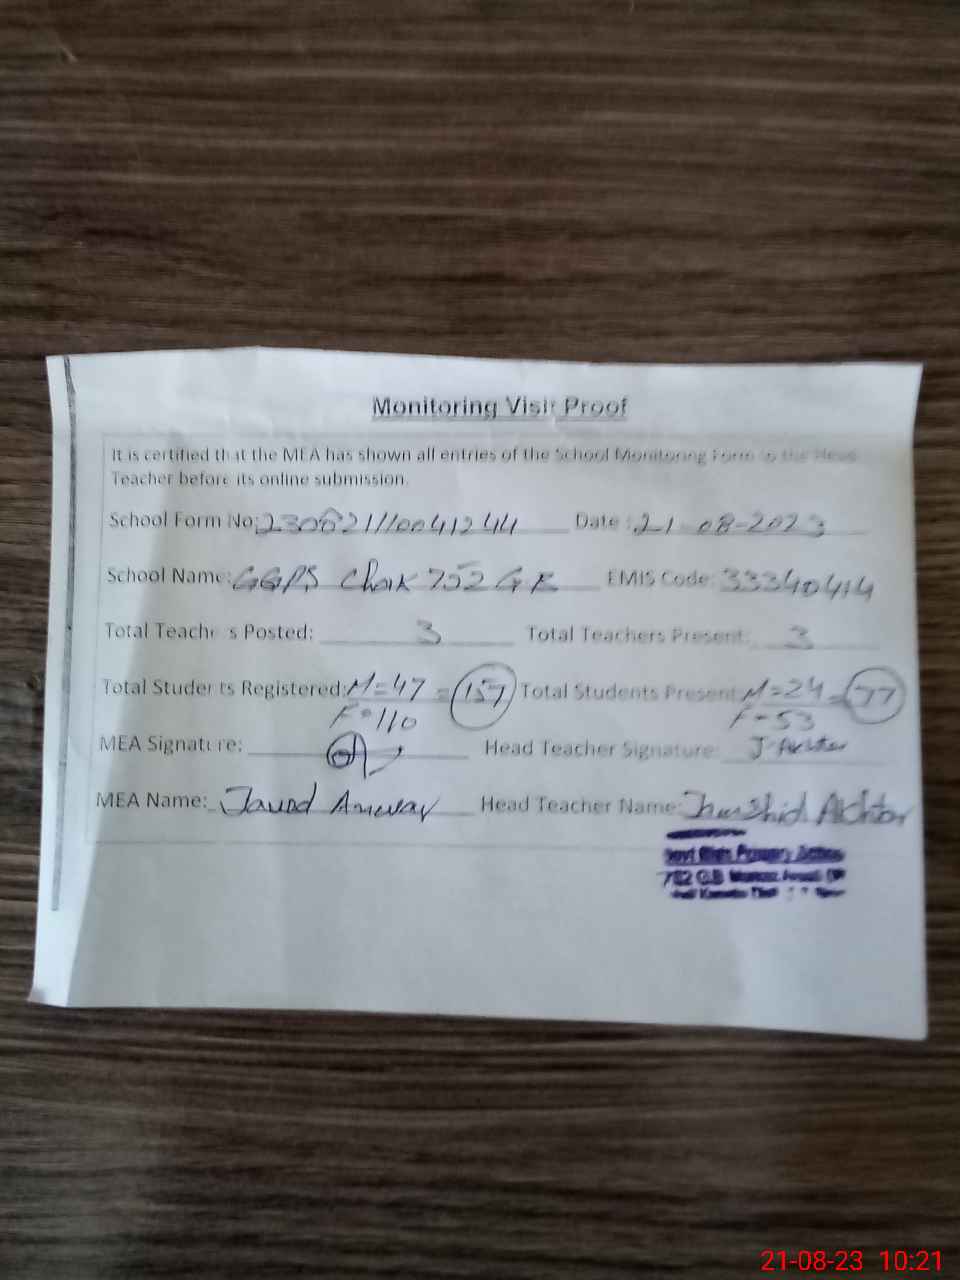 Monitoring Visit Proof
It is certified that the MEA has shown all entries of the School Monitoring Form to the Head
Teacher before its online submission.
School Form No: 2308211110041244 Date: 21-08-2023
School Name: GGPS Chak 752 GB EMIS Code: 33340414
Total Teachers Posted: 3 Total Teachers Present: 3
Total Students Registered: M=47 = 157 Total Students Present: M=24 = 77
F=110 F=53
MEA Signature: Head Teacher Signature: J Akhtar
MEA Name: Javed Anwar Head Teacher Name: Jamshid Akhtar
Primary
752 G.B
21-08-23 10:21